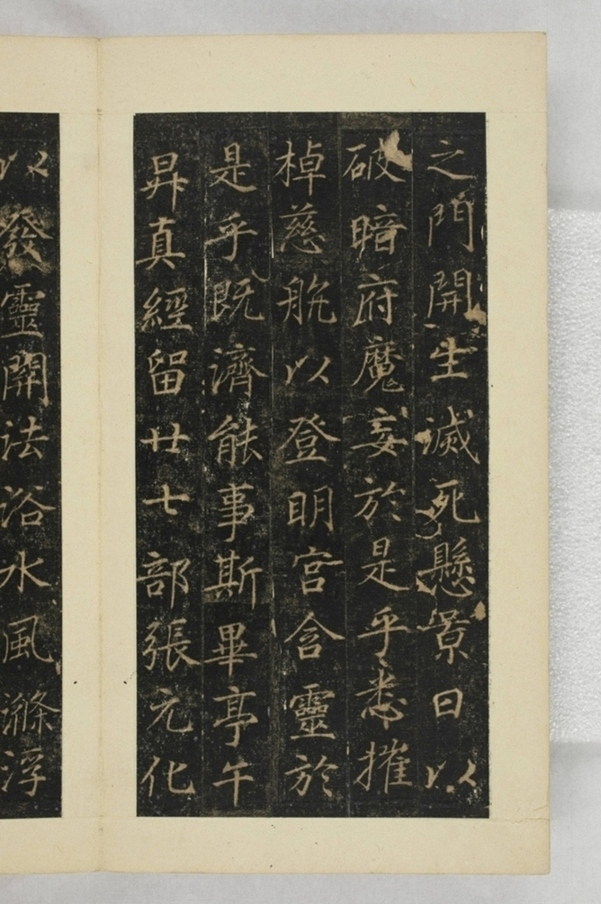 之門開生滅死懸景日以
破暗府魔妄於是乎悉摧
棹慈航以登明宮含靈於
是乎既濟能事斯畢亭午
昇真經留廿七部張元化
以發靈開法浴水風滌浮